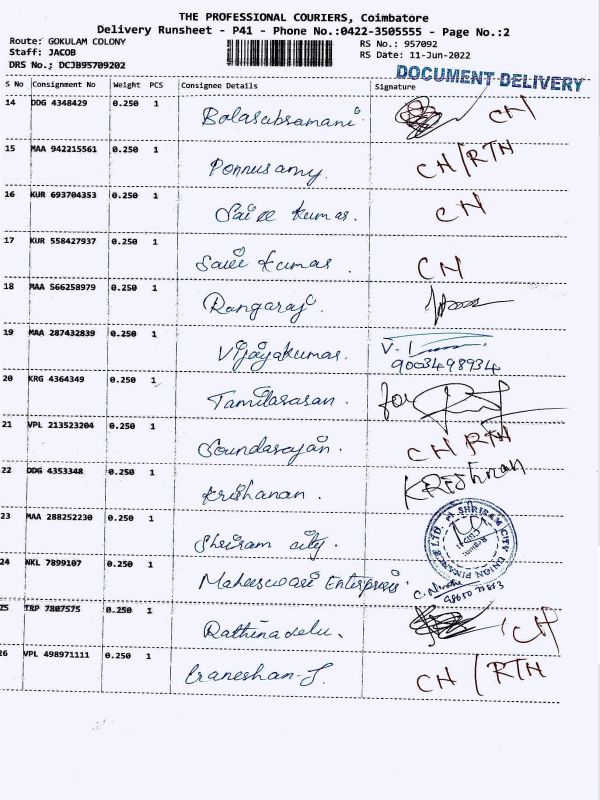 THE PROFESSIONAL COURIERS, Coimbatore
Delivery Runsheet - P41 - Phone No.:0422-3505555 - Page No.:2
Route: GOKULAM COLONY RS No.: 957092
Staff: JACOB RS Date: 11-Jun-2022
DRS No.; DCJB95709202
DOCUMENT DELIVERY
S No Consignment No Weight PCS Consignee Details Signature
14 DDG 4348429 0.250 1 Balasubramani CH
15 MAA 942215561 0.250 1 Ponnusamy. CH/RTH
16 KUR 693704353 0.250 1 Kumar. CH
17 KUR 558427937 0.250 1 Kumar. CH
18 MAA 566258979 0.250 1 Rangaraj.
19 MAA 287432839 0.250 1 Vijayakumar. V.
9003498934
20 KRG 4364349 0.250 1 Tamilarasan. for
21 VPL 213523204 0.250 1 Soundarajan. CH RTH
22 DDG 4353348 0.250 1 Krishanan. KRishnan
23 MAA 288252230 0.250 1 Shriram city. SHRIRAM CITY UNION FINANCE LTD.
24 NKL 7899107 0.250 1 Maheeswari Enterprises
25 TRP 7807575 0.250 1 Rathinavelu. CH
26 VPL 498971111 0.250 1 Graneshan-J. CH/RTH